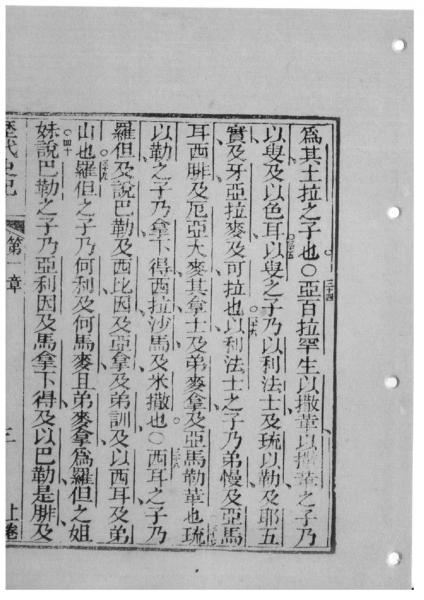 爲其土拉之子也○亞百拉罕生以撒革以撒革之子乃
三十四
以叟及以色耳以叟之子乃以利法士及琉以勒及耶五
三十五
實及牙亞拉麥及可拉也以利法士之子乃弟慢及亞馬
三十六
耳西腓及厄亞大麥其拿士及弟麥拿及亞馬勒革也琉
三十七
以勒之子乃拿下得西拉沙馬及米撒也○西耳之子乃
三十八
羅但及說巴勒及西比因及亞拿及弟訓及以西耳及弟
山也羅但之子乃何利及何馬麥且弟麥拿爲羅但之姐
三十九
妹說巴勒之子乃亞利因及馬拿下得及以巴勒是腓及
四十
歷代史記 第 章 三 上卷